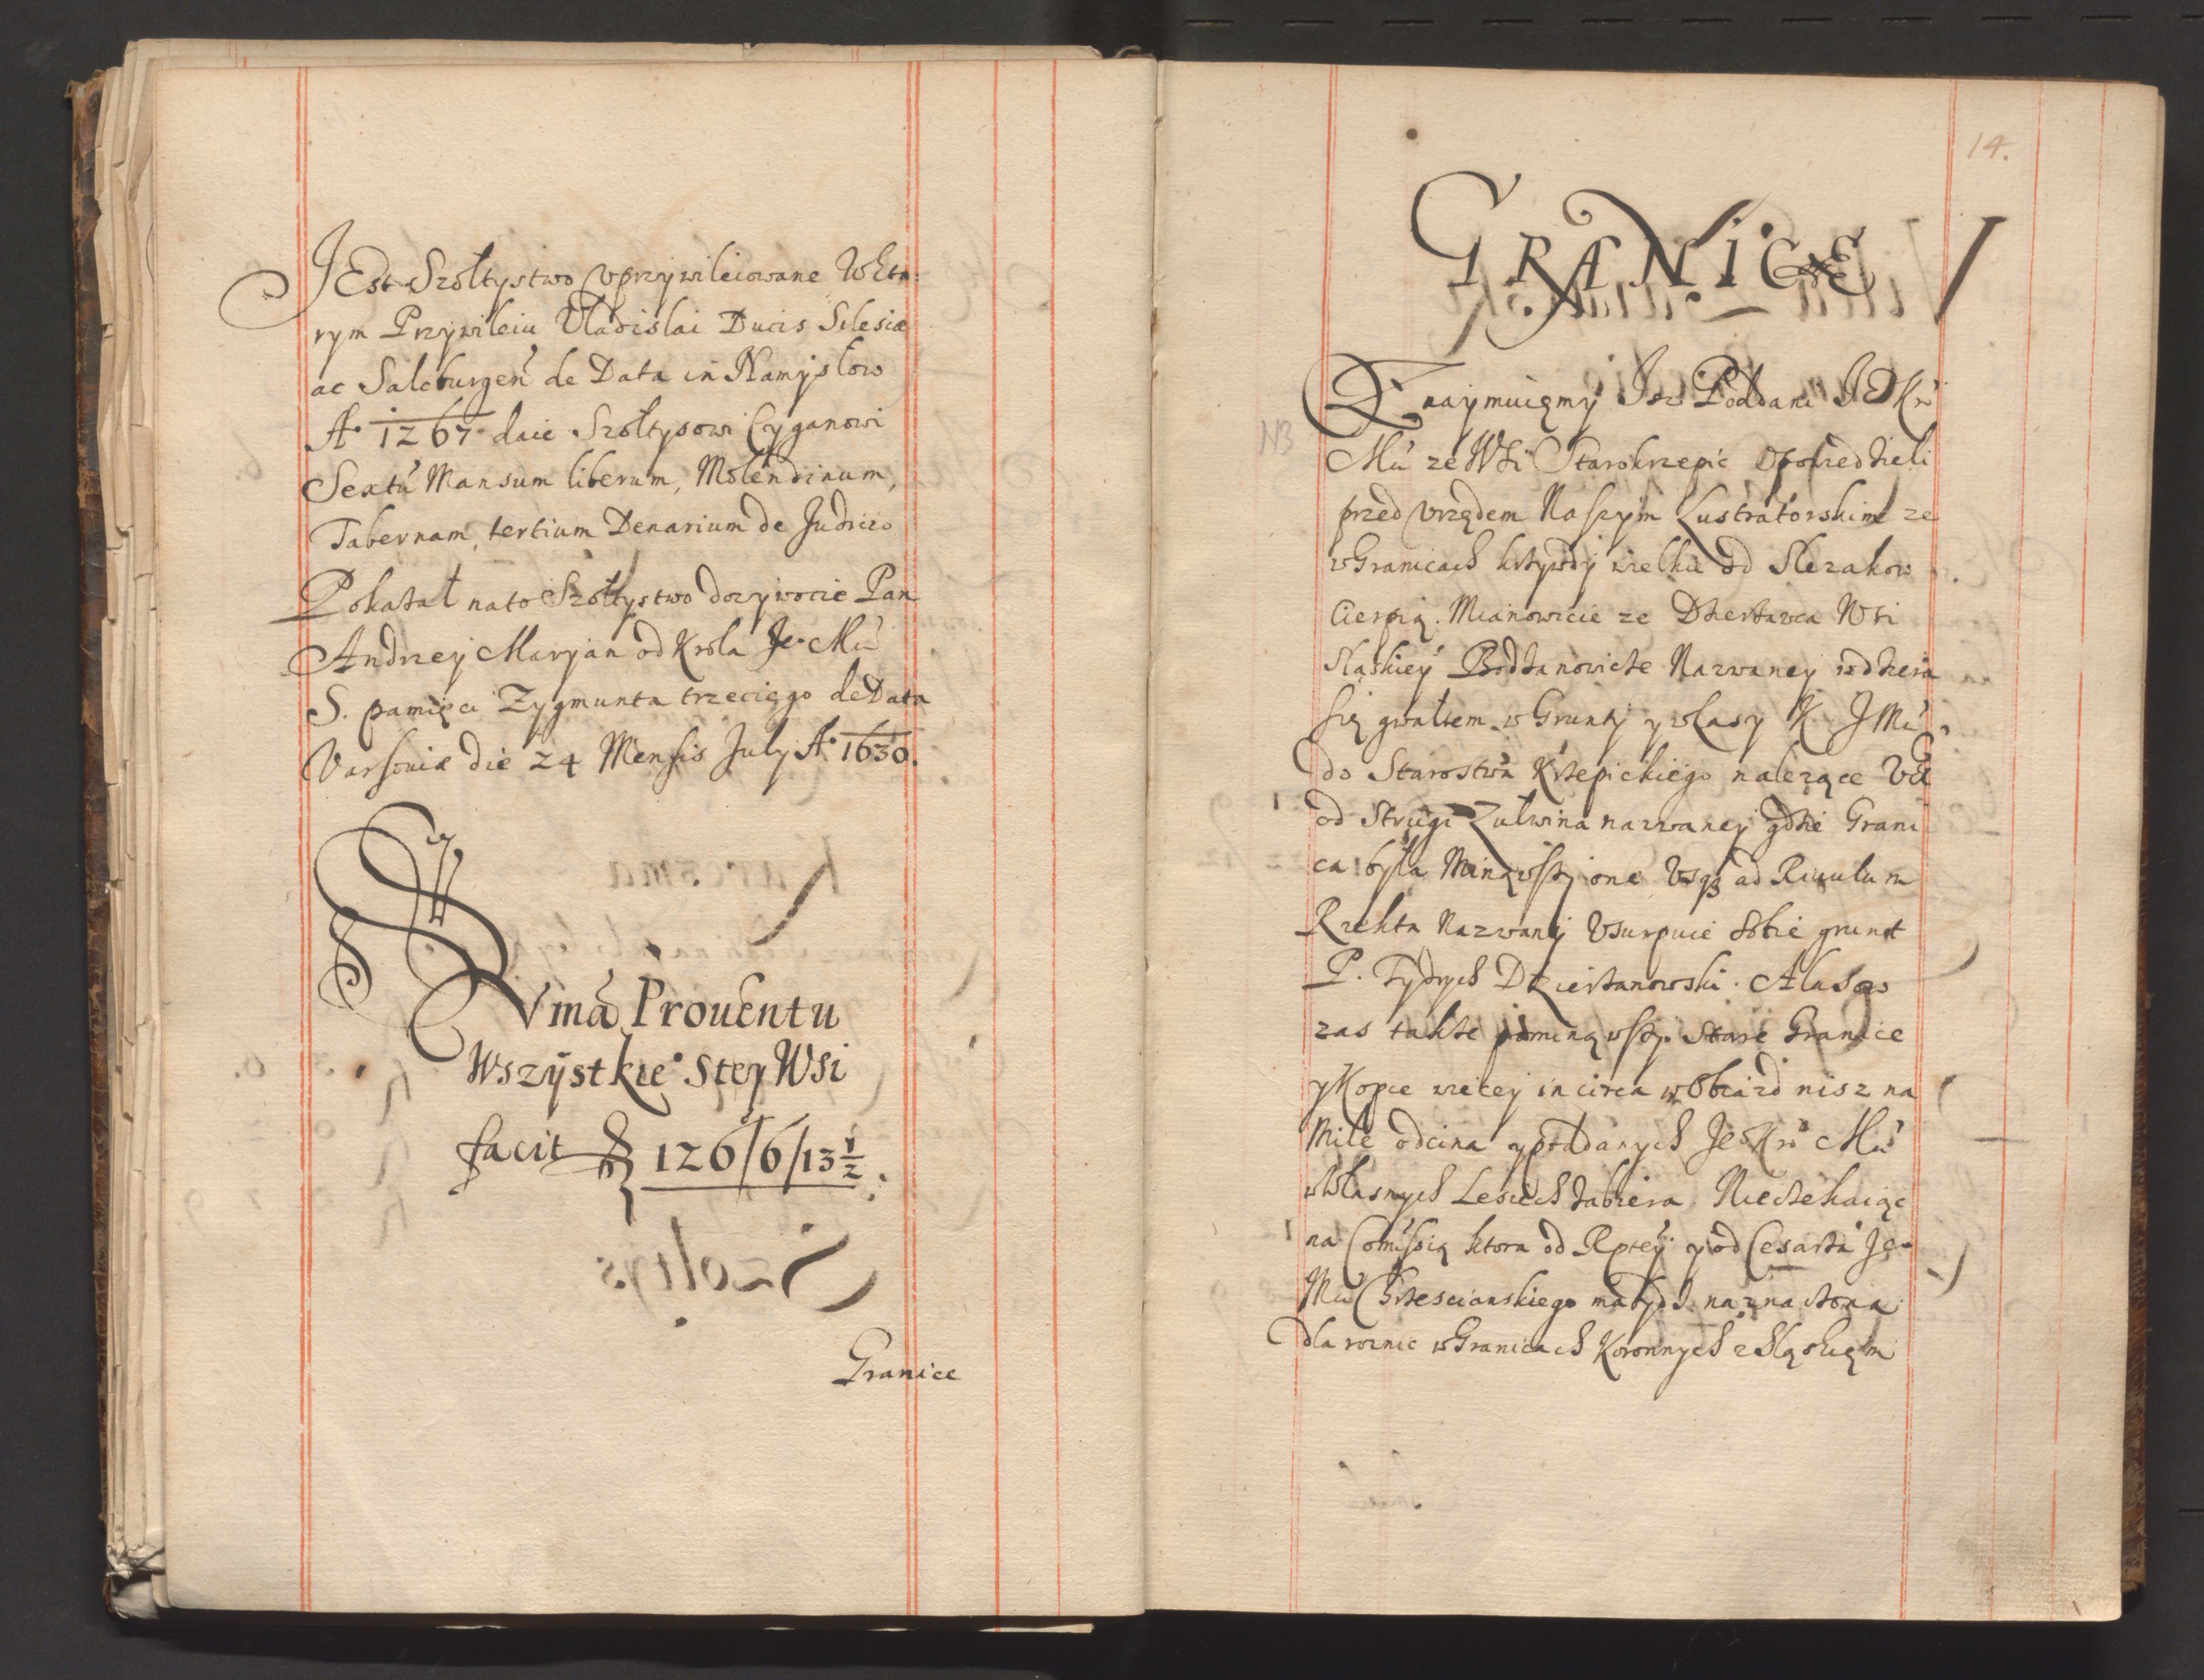 JEst Szołtystwo Vprzywileiowane WKto:
rym Przywileiu Vladislai Ducis Silesiæ
ac Salcburgeñ de Data in Namysłow
A° 1267 daie Szołtysowi Cyganowi
Sextũ Mansum liberum, Molendinum,
Tabernam, tertium Denarium de Judicio
Pokazał nato Szołtystwo dozywocie Pan
Andrzey Maryan od Krola Je° Mci
S. pamięci Zygmunta trzeciego deData
Varsouiæ die 24 Mensis July A° 1630.
Suma Prouentu
Wszystkie° stey Wsi
facit 126/6/13 1/2
Granice
14.
GRANICE
NB
Znaymuięmy Isz Poddani J Kr
Mci ze WSi Starokrzepic Opowiedzieli
przed Vrzędem Naszym Lustratorskim ze
wGranicach krzywdy wielkie od Slezakow
Cierpią. Mianowicie ze Dzerzawca Wsi
Sląskiey Bodzanowicze Nazwaney wdziera
się gwałtem w Grunty y wlasy K J Mci
do Starostwa Krzepickiego nalezące Vt
od Strugi Zulwina nazwaney gdzie Grani
ca była Minąwszy one Vsq3 ad Riuulum
Rzekta Nazwany Vsurpuie sobie grunt
P. Frydrych Dzierzanowski. A
zas takze pominąwszy Stare Granice
y Kopce więcey in circa wObiazd nisz na
Mile odcina y poddanych Je Kr Mci
wWłasnych Lesiech zabiera. Nieczekaiąc
na Comissią ktora od Rptey y od Cesarza Je°
Mci Chrzescianskiego ma bydz naznaczona
dla roznic wGranicach Koronnych z Sląskięmi